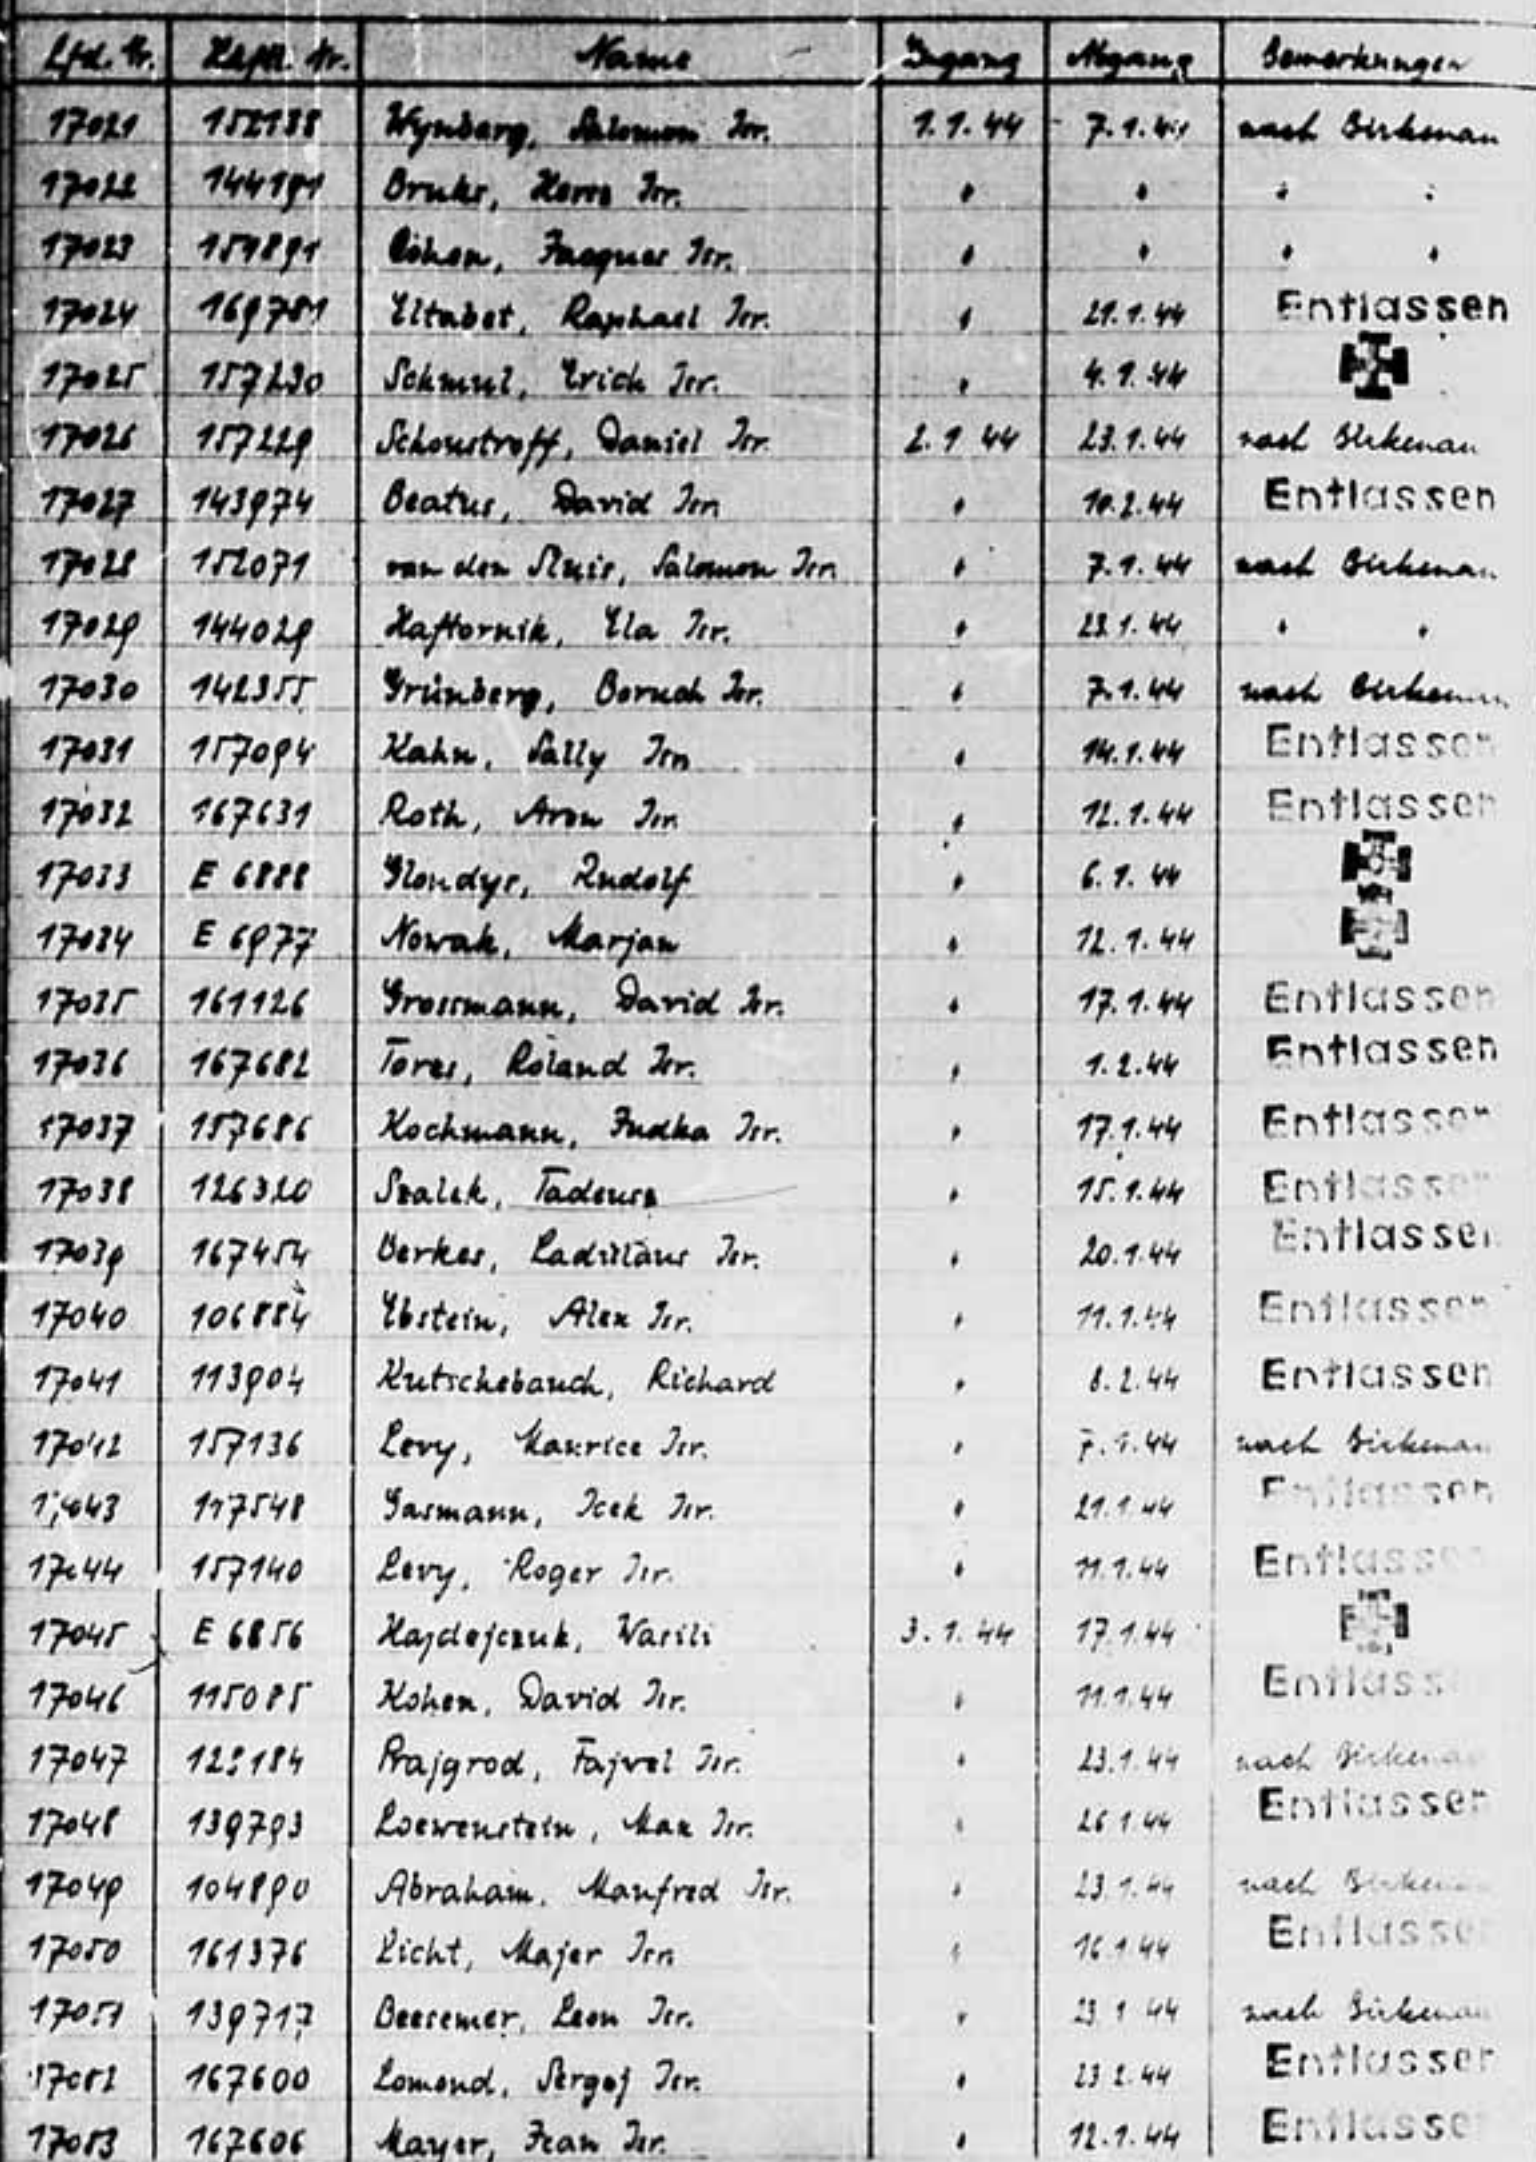 Lfd. Nr. Häftl. Nr. Name Zugang Abgang Bemerkungen
17021 152138 Wynberg, Salomon Isr. 1.1.44 7.1.44 nach Birkenau
17022 144191 Bruks, Isr. " " " "
17023 159891 Cohen, Jacques Isr. " " " "
17024 169781 Eltabet, Raphael Isr. " 21.1.44 Entlassen
17025 157230 Schmul, Erich Isr. " 4.1.44
17026 157229 Schoustroff, Daniel Isr. 2.1.44 23.1.44 nach Birkenau
17027 143974 Beatus, David Isr. " 10.2.44 Entlassen
17028 152071 van der Sluis, Salomon Isr. " 7.1.44 nach Birkenau
17029 144029 Haftornik, Ela Isr. " 23.1.44 " "
17030 142355 Grünberg, Boruch Isr. " 7.1.44 nach Birkenau
17031 157094 Kahn, Sally Isr. " 14.1.44 Entlassen
17032 167631 Roth, Aron Isr. " 12.1.44 Entlassen
17033 E 6888 Glondys, Rudolf " 6.1.44
17034 E 6977 Nowak, Marjan " 12.1.44
17035 161126 Grossmann, David Isr. " 17.1.44 Entlassen
17036 167682 Tores, Roland Isr. " 1.2.44 Entlassen
17037 157686 Kochmann, Judka Isr. " 17.1.44 Entlassen
17038 126320 Szalek, Tadeusz " 15.1.44 Entlassen
17039 167454 Berkes, Ladislaus Isr. " 20.1.44 Entlassen
17040 106884 Ebstein, Alex Isr. " 11.1.44 Entlassen
17041 113904 Kutschebauch, Richard " 8.2.44 Entlassen
17042 157136 Levy, Maurice Isr. " 7.1.44 nach Birkenau
17043 117548 Gasmann, Icek Isr. " 21.1.44 Entlassen
17044 157140 Levy, Roger Isr. " 11.1.44 Entlassen
17045 E 6856 Hajdejczuk, Wasili 3.1.44 17.1.44
17046 115085 Kohen, David Isr. " 11.1.44 Entlassen
17047 Prajgrod, Fajvel Isr. " 23.1.44 nach Birkenau
17048 139793 Loewenstein, Max Isr. " 26.1.44 Entlassen
17049 104890 Abraham, Manfred Isr. " 23.1.44 nach Birkenau
17050 161376 Licht, Majer Isr. " 16.1.44 Entlassen
17051 139717 Beesemer, Leon Isr. " 23.1.44 nach Birkenau
17052 167600 Lomond, Sergej Isr. " 23.2.44 Entlassen
17053 167606 Mayer, Jean Isr. " 12.1.44 Entlassen